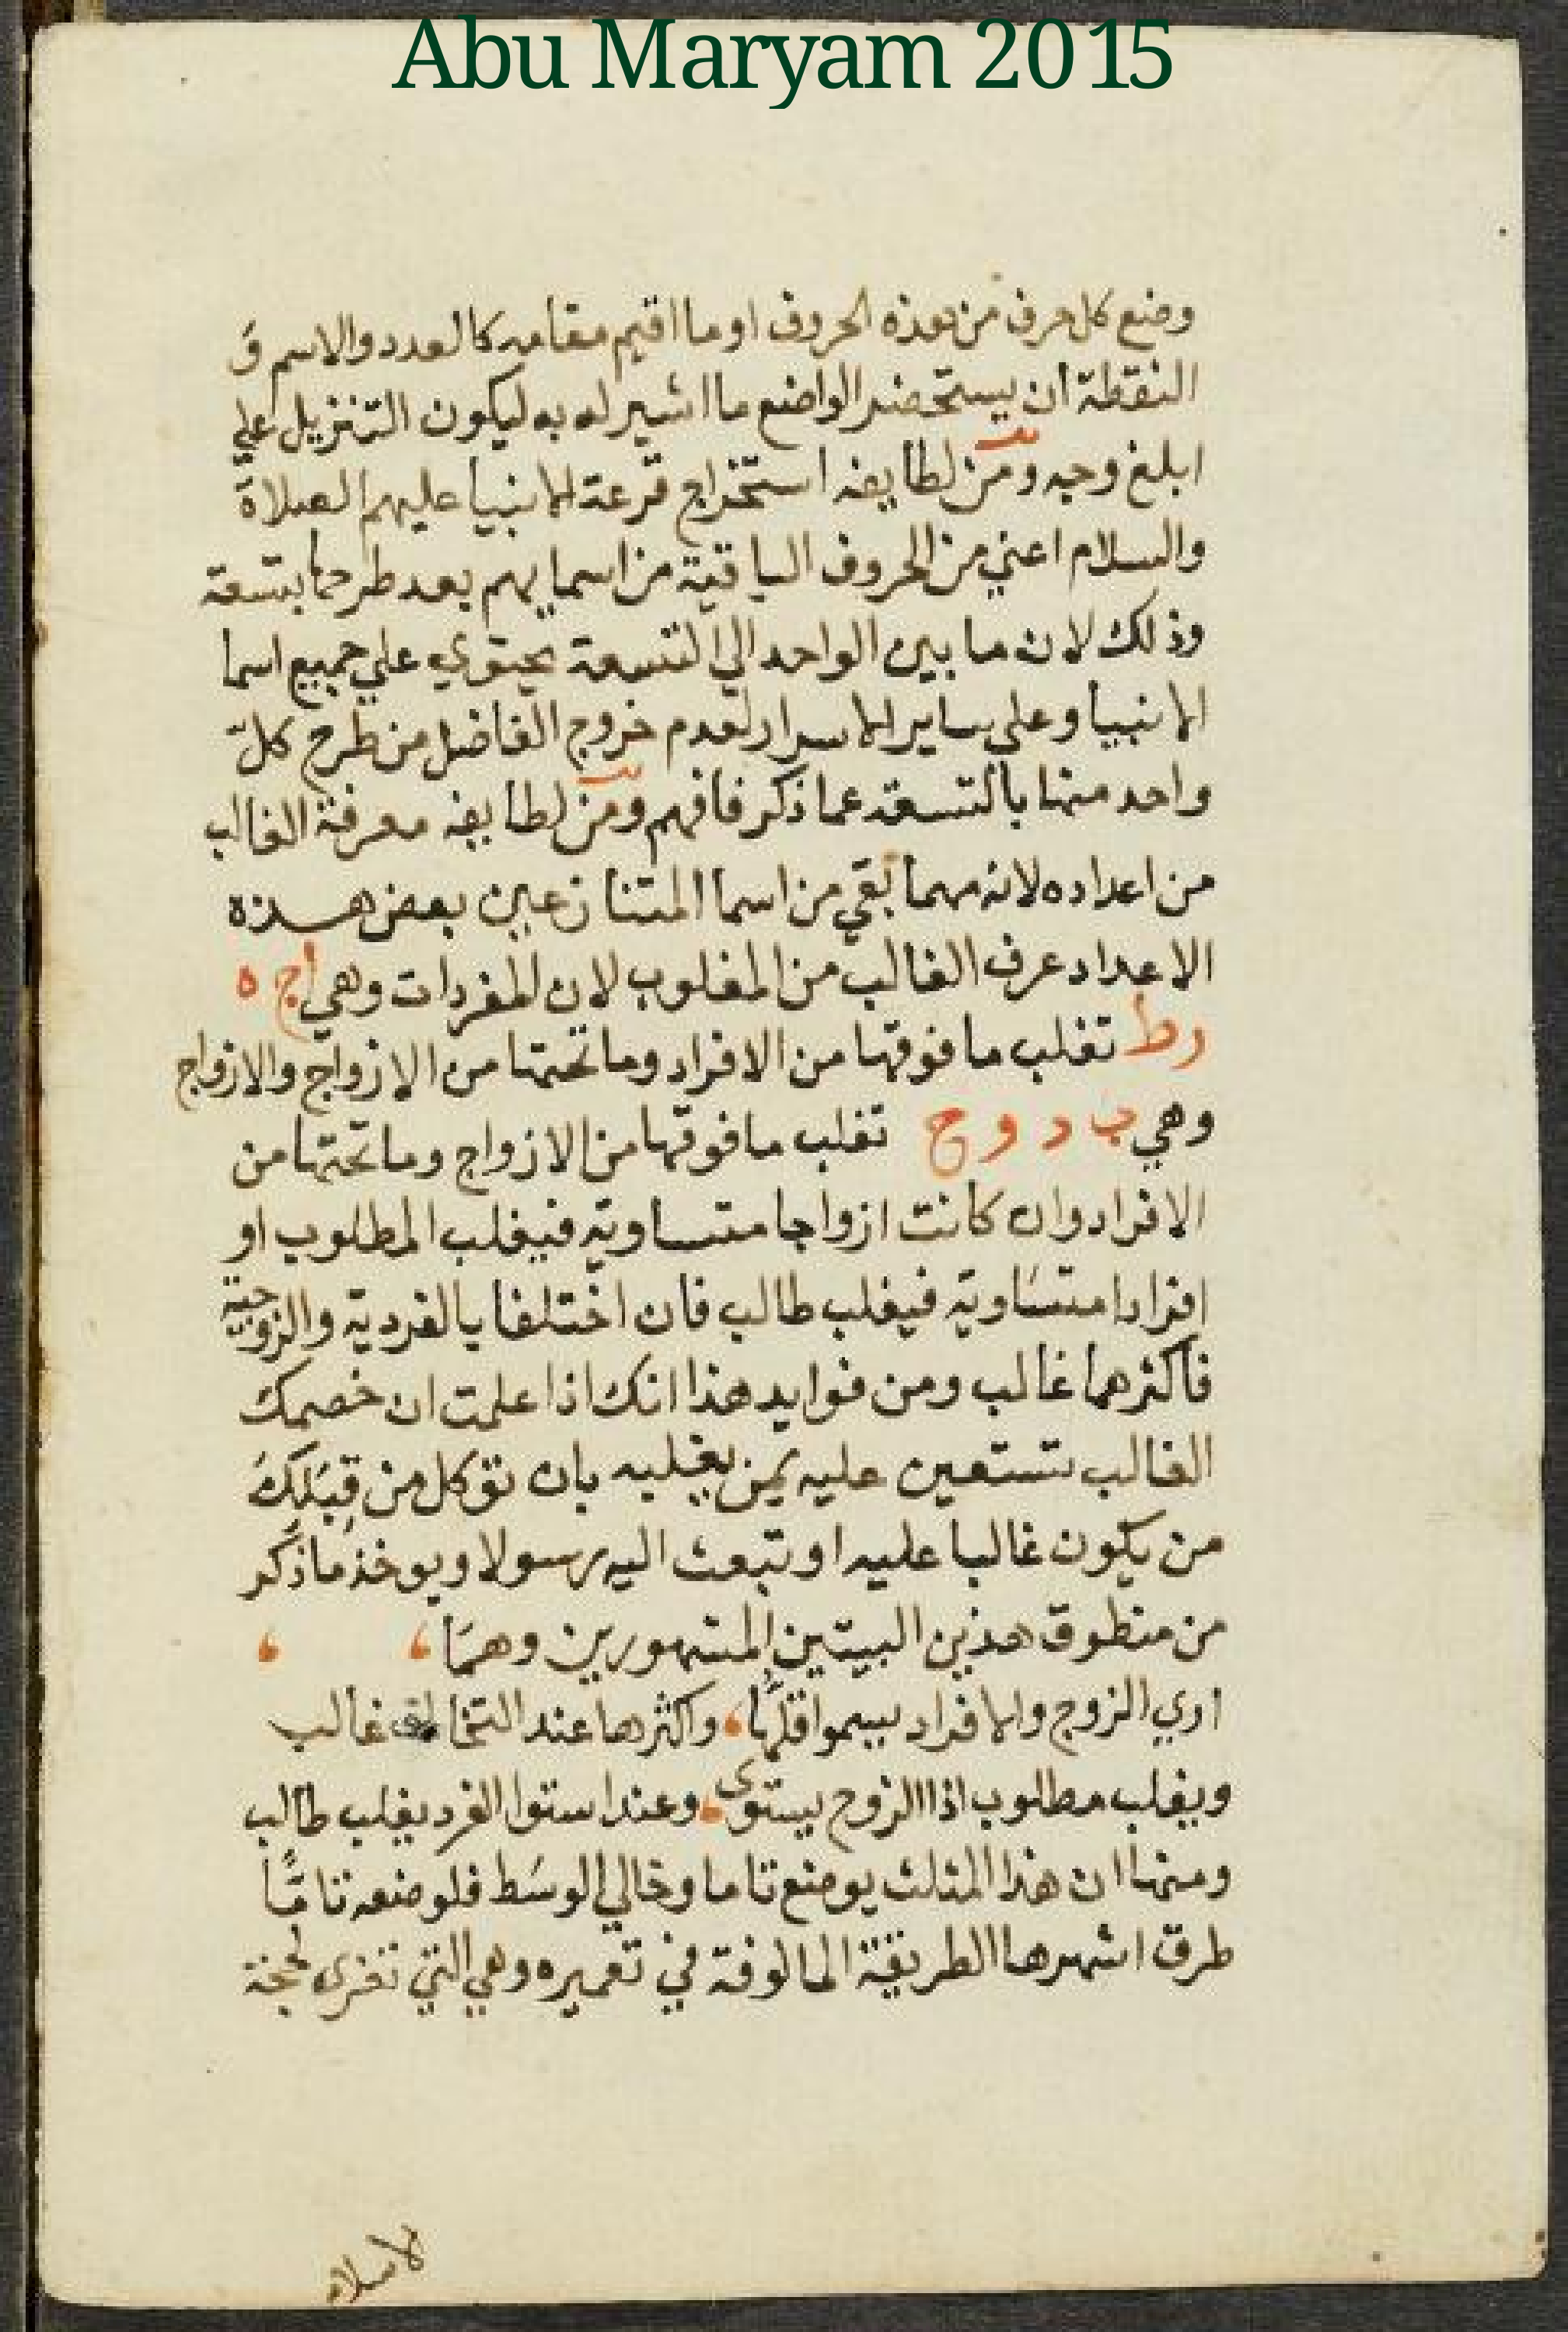 Abu Maryam 2015
وضع كل حرف من هذه الحروف او ما اقيم مقامه كالعدد والاسم وَ
النقطة ان يستحضر الواضع ما اشير له به ليكون التنزيل علي
ابلغ وجه ومن لطايفه استخراج قرعة الانبيا عليهم الصلاة
والسلام اعني من الحروف الباقية من اسمايهم بعد طرحها بتسعة
وذلك لان ما بين الواحد الي التسعة يحتوي علي جميع اسما
الانبيا وعلي ساير الاسرار لعدم خروج الفاضل من طرح كل
واحد منها بالتسعة عما ذكر فافهم ومن لطايفه معرفة الغالب
من اعداده لانه مهما بقي من اسما المتنازعين بعض هذه
الاعداد عرف الغالب من المغلوب لان المفردات وهي ا ج ه
ر ط تغلب ما فوقها من الافراد وما تحتها من الازواج والازواج
وهي ب د و ح تغلب ما فوقها من الازواج وما تحتها من
الافراد وان كانت ازواجا متساوية فيغلب المطلوب او
افرادا متسَاوية فيغلب طالب فان اختلفا بالفردية والزوجية
فاكثرهما غالب ومن فوايد هذا انك اذا علمت ان خصمك
الغالب تستعين عليه بمن يغلبه بان توكل من قِبَلِكَ
من يكون غالبا عليه او تبعث اليه رسولا ويوخذ ما ذكر
من منطوق هذين البيتين المشهورين وهمَا ،          ،
اري الزوج والافراد يسموا قلها ، واكثرها عند التخالف غالب
ويغلب مطلوب اذا الزوج يستوى ، وعند استوا الفرد يغلب طالب
ومنها ان هذا المثلث يوضع تاما وخالي الوسَط فلوضعه تامًّا
طرق اشهرها الطريقة المالوفة في تعميره وهي التي تغزى لحجة